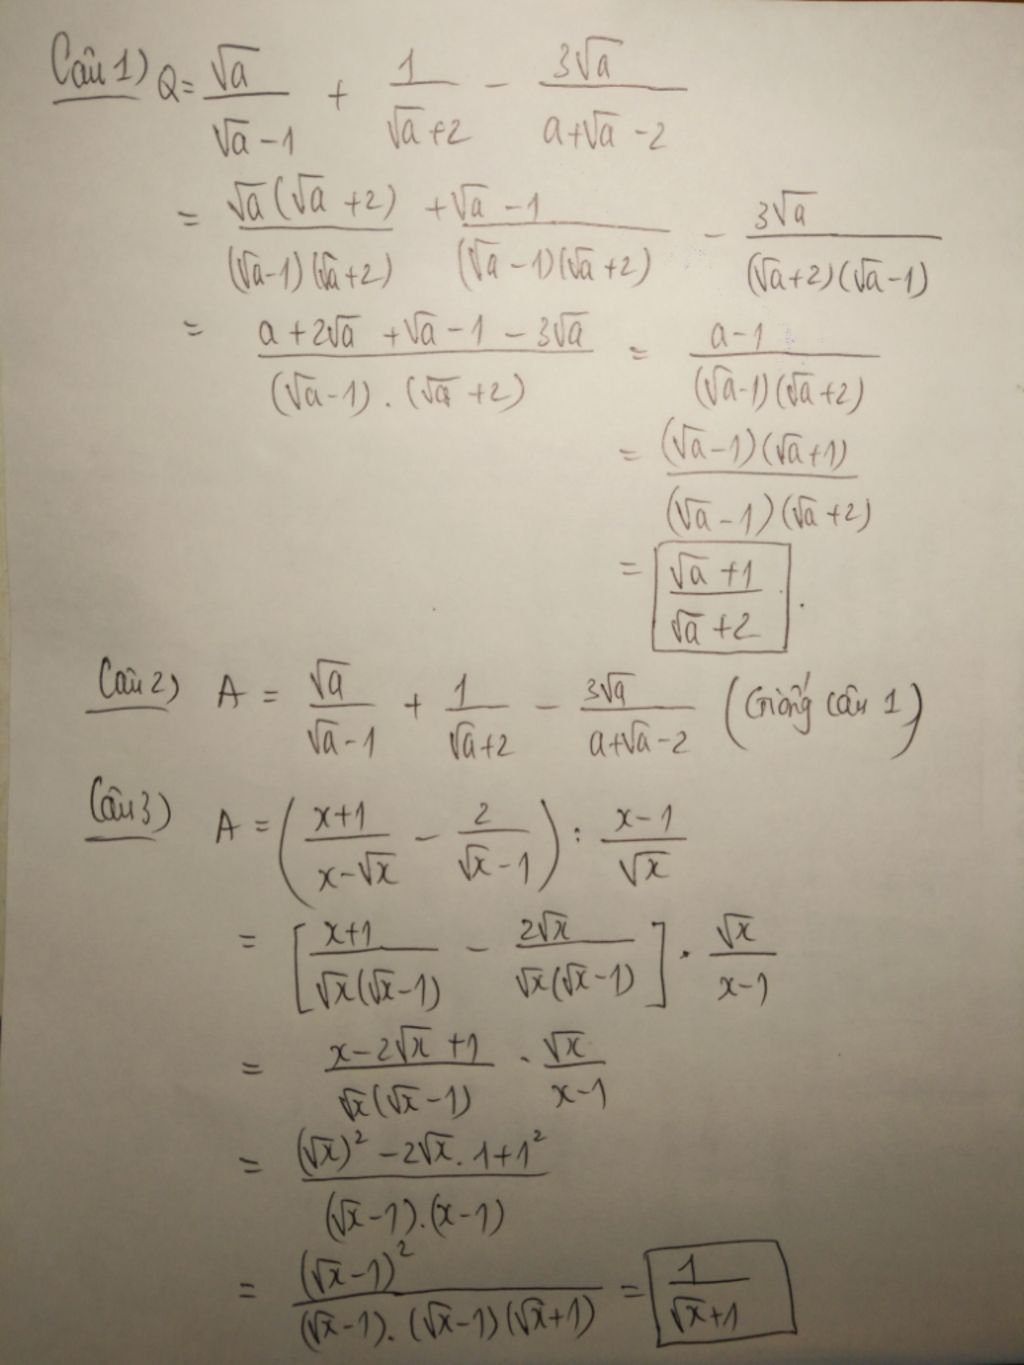 Câu 1) Q = √a/(√a - 1) + 1/(√a + 2) - 3√a/(a + √a - 2)
= √a(√a + 2)/((√a - 1)(√a + 2)) + (√a - 1)/((√a - 1)(√a + 2)) - 3√a/((√a + 2)(√a - 1))
= (a + 2√a + √a - 1 - 3√a)/((√a - 1).(√a + 2)) = (a - 1)/((√a - 1)(√a + 2))
= (√a - 1)(√a + 1)/((√a - 1)(√a + 2))
= (√a + 1)/(√a + 2).
Câu 2) A = √a/(√a - 1) + 1/(√a + 2) - 3√a/(a + √a - 2) (Giống câu 1)
Câu 3) A = ((x + 1)/(x - √x) - 2/(√x - 1)) : (x - 1)/√x
= [(x + 1)/(√x(√x - 1)) - 2√x/(√x(√x - 1))] . √x/(x - 1)
= (x - 2√x + 1)/(√x(√x - 1)) . √x/(x - 1)
= ((√x)² - 2√x.1 + 1²)/((√x - 1).(x - 1))
= (√x - 1)²/((√x - 1).(√x - 1)(√x + 1)) = 1/(√x + 1)